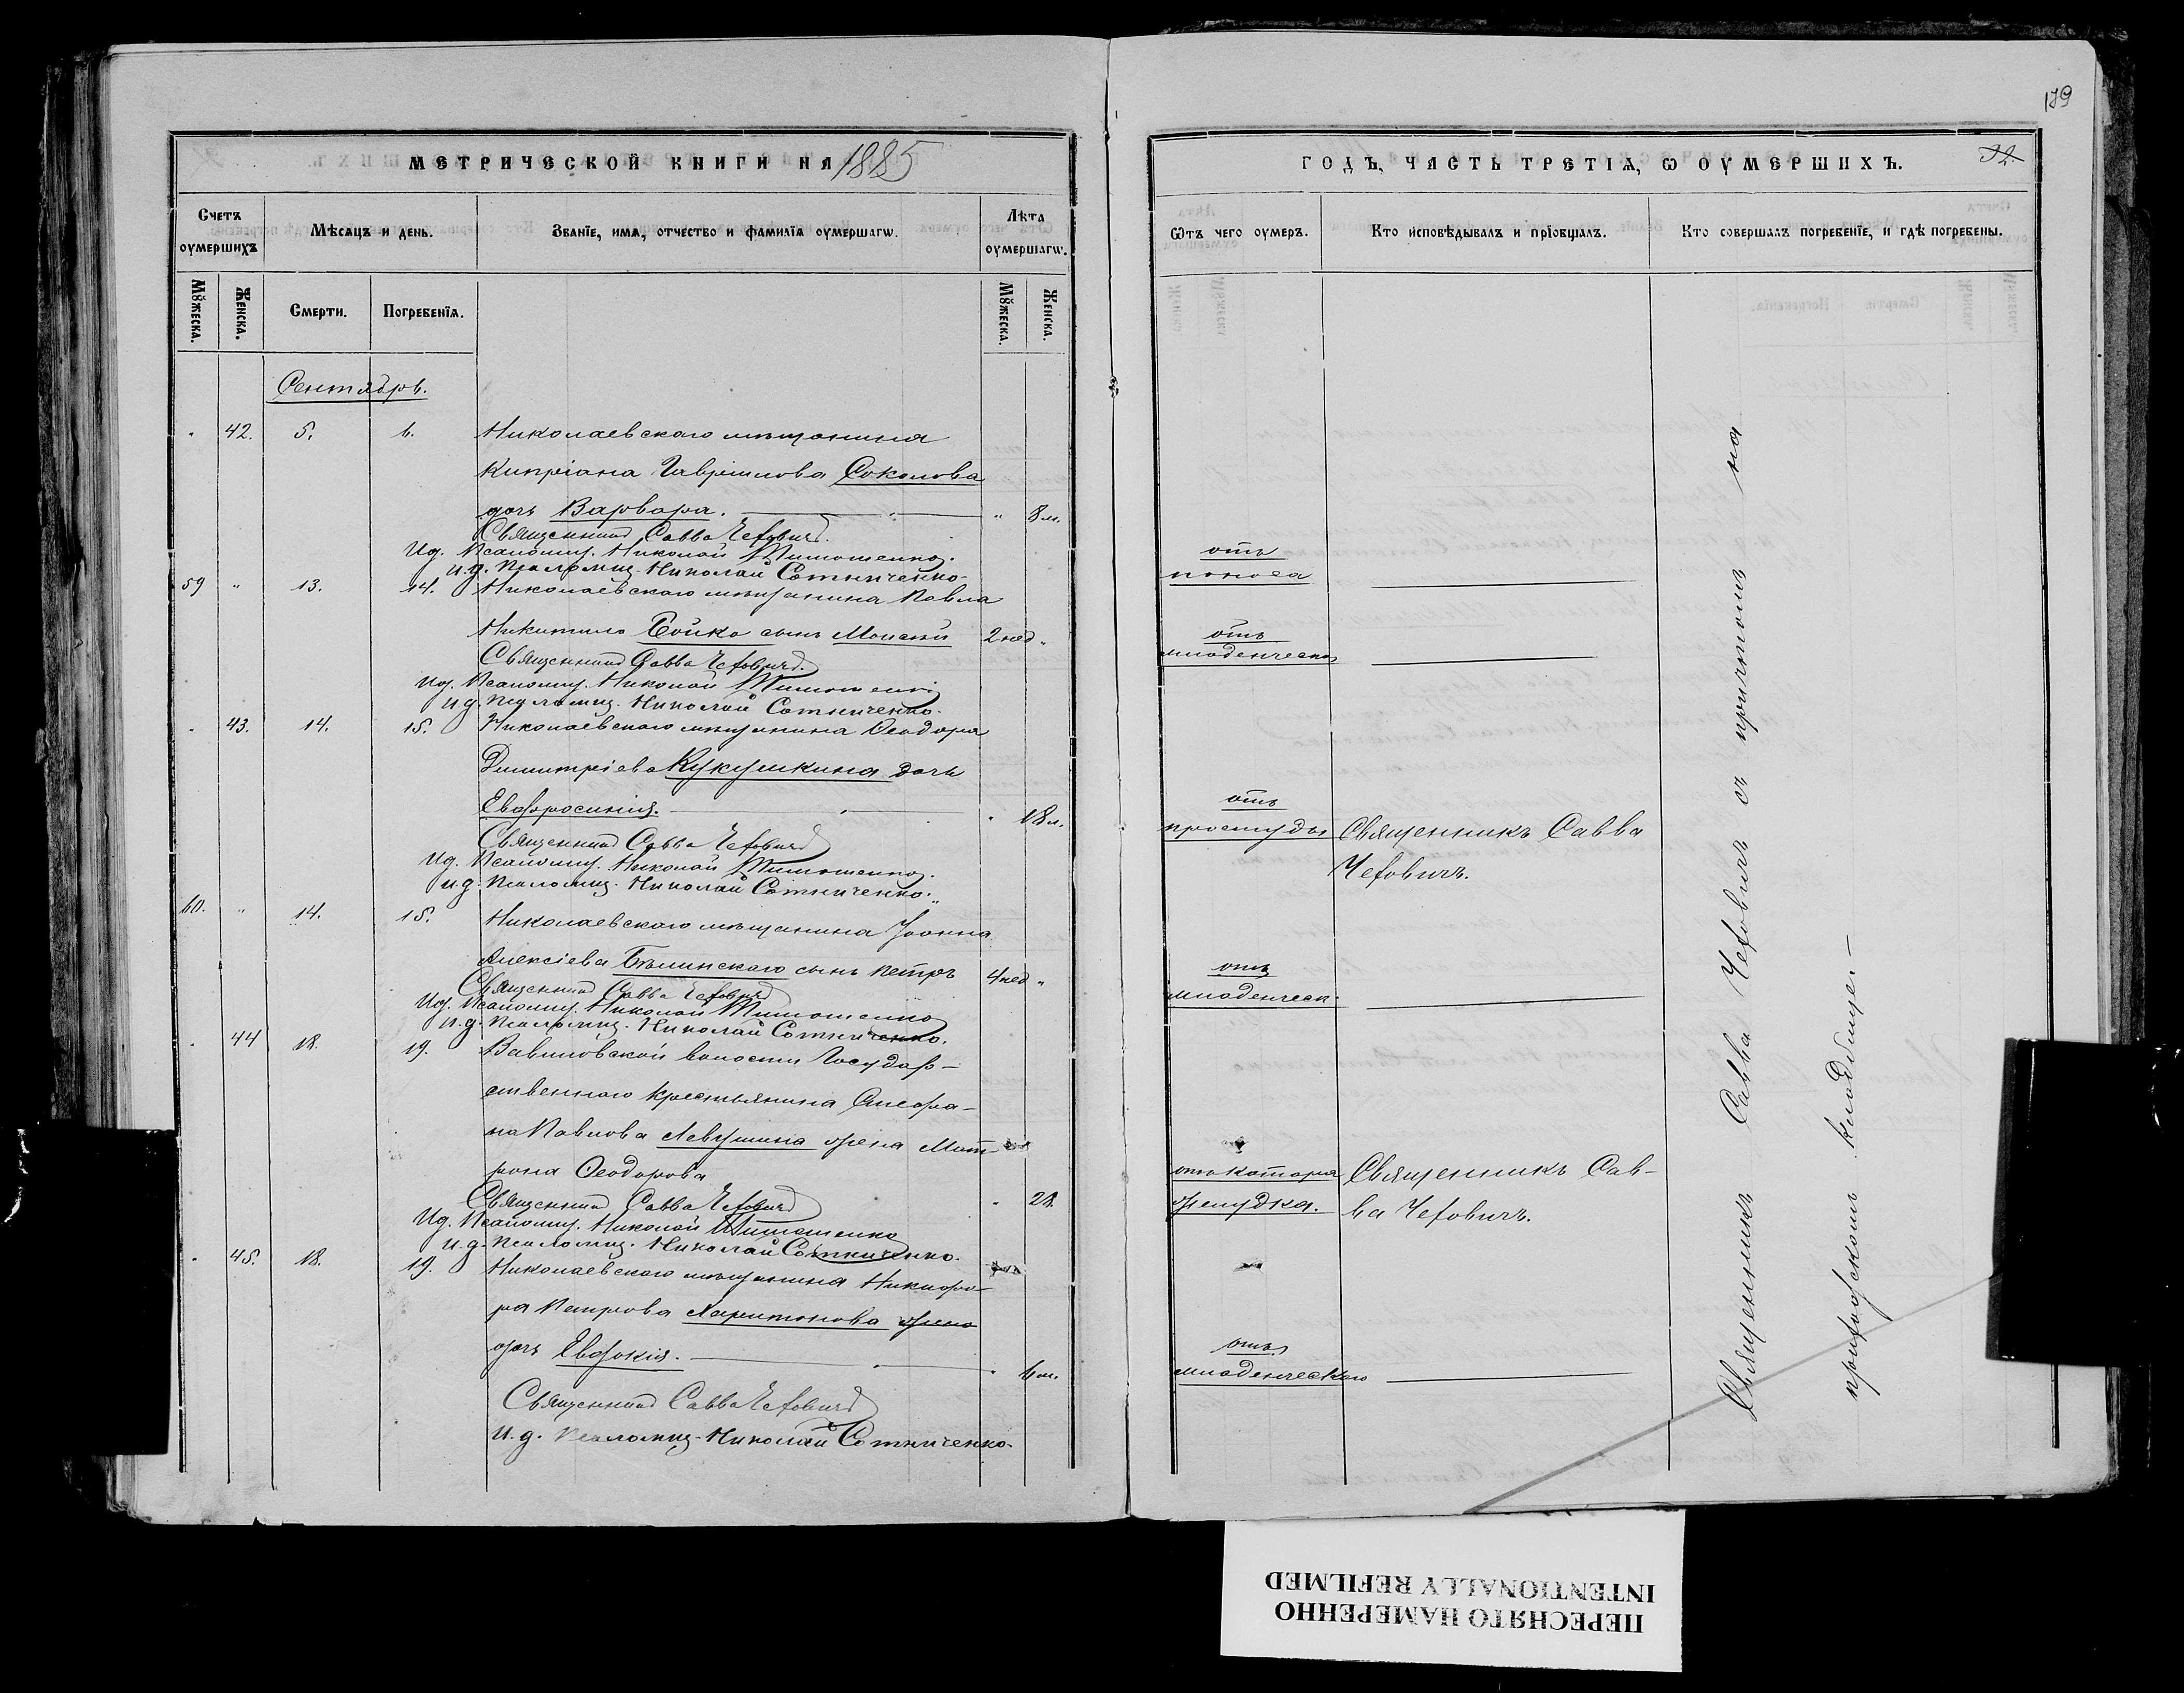 179
МЕТРИЧЕСКОЙ КНИГИ НА 1885
ГОДЪ, ЧАСТЬ ТРЕТІѦ, Ѡ ОУМЕРШИХЪ.
Счетъ оумершихъ
Мѣсѧцъ и день.
Званїе, имѧ, отчество и фамилїѧ оумершагѡ.
Лѣта оумершагѡ.
Мꙋжеска.
Женска.
Смерти.
Погребенїѧ.
Мꙋжеска.
Женска.
Ѿтъ чего оумеръ.
Кто исповѣдывалъ и прїобщалъ.
Кто совершалъ погребенїе, и гдѣ погребены.
Сентябрь.
42. 5. 6. Николаевскаго мѣщанина
Кипріана Гавріилова Соколова
дочь Варвара. 8 м.
Священникъ Савва Чехович
И.д. Псаломщ. Николай Тимошенко.
и.д. Псаломщ. Николай Сотниченко.
отъ
поноса
59 13. 14. Николаевскаго мѣщанина Павла
Никитина Бойко сынъ Моисей 2 нед
Священникъ Савва Чехович
И.д. Псаломщ. Николай Тимошенко
и.д. Псаломщ. Николай Сотниченко.
отъ
младенческ
43. 14. 15. Николаевскаго мѣщанина Ѳеодора
Димитріева Кукушкина дочь
Евфросинія. 18 л.
Священникъ Савва Чехович
И.д. Псаломщ. Николай Тимошенко.
и.д. Псаломщ. Николай Сотниченко.
отъ
простуды
Священникъ Савва
Чеховичъ.
60. 14. 15. Николаевскаго мѣщанина Іоанна
Алексіева Бѣлинскаго сынъ Петръ 4 нед
Священникъ Савва Чехович
И.д. Псаломщ. Николай Тимошенко
и.д. Псаломщ. Николай Сотниченко.
отъ
младенческ.
44 18. 19. Вавиловской волости Государ-
ственнаго крестьянина
на Павлова Левушина жена Мат-
рона Ѳеодорова 28.
Священникъ Савва Чехович
И.д. Псаломщ. Николай Тимошенко
и.д. Псаломщ. Николай Сотниченко.
отъ катара
желудка.
Священникъ Сав-
ва Чеховичъ.
45. 18. 19. Николаевскаго мѣщанина Никифо-
ра Петрова Харитонова жена
дочь Евдокія. 6 м.
Священникъ Савва Чехович
и.д. Псаломщ. Николай Сотниченко.
отъ
младенческаго
Священникъ Савва Чеховичъ съ причтомъ на
приходскомъ кладбище
ПЕРЕСНЯТО НАМЕРЕННО
INTENTIONALLY REFILMED